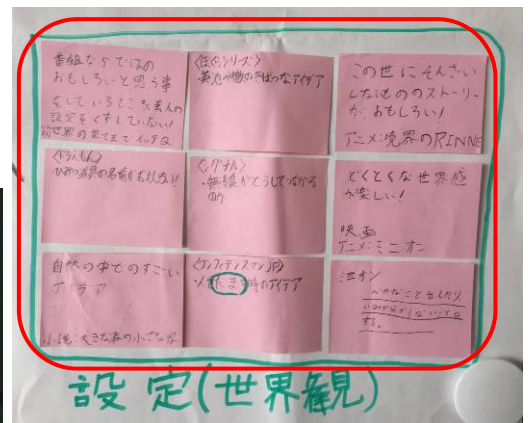 番組ならではの
おもしろいと思う事
をしているところ芸人の
設定をくずしていない!
世界の果てまでイッテQ
アイデア
この世にそんざい
しないもののストーリー
が、おもしろい!
アニメ:境界のRINNE
〈ドラえもん〉
ひみつ道具の名前がおもしろい!
無線がどうしてつながる
のか
どくとくな世界感
が楽しい!
映画
アニメ:ミニオン
自然の中でのすごい
アイデア
小説:大きな森の小さな家
〈コンフィデンスマンJP〉
人をだます時のアイデア
ミニオン
へんなことをしたり
する。
設定(世界観)